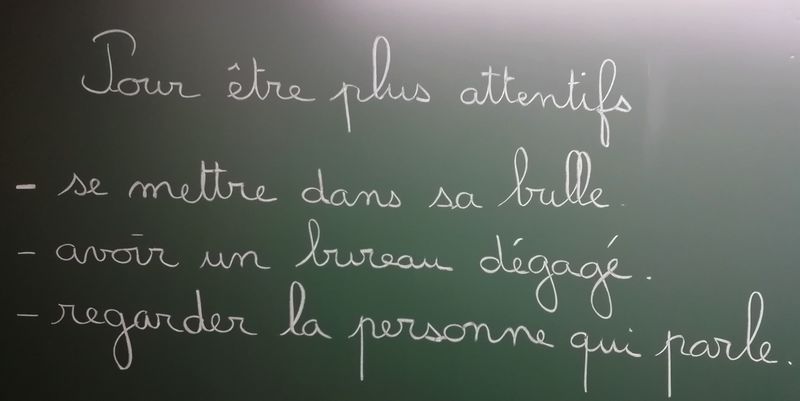 Pour être plus attentifs
- se mettre dans sa bulle.
- avoir un bureau dégagé.
- regarder la personne qui parle.